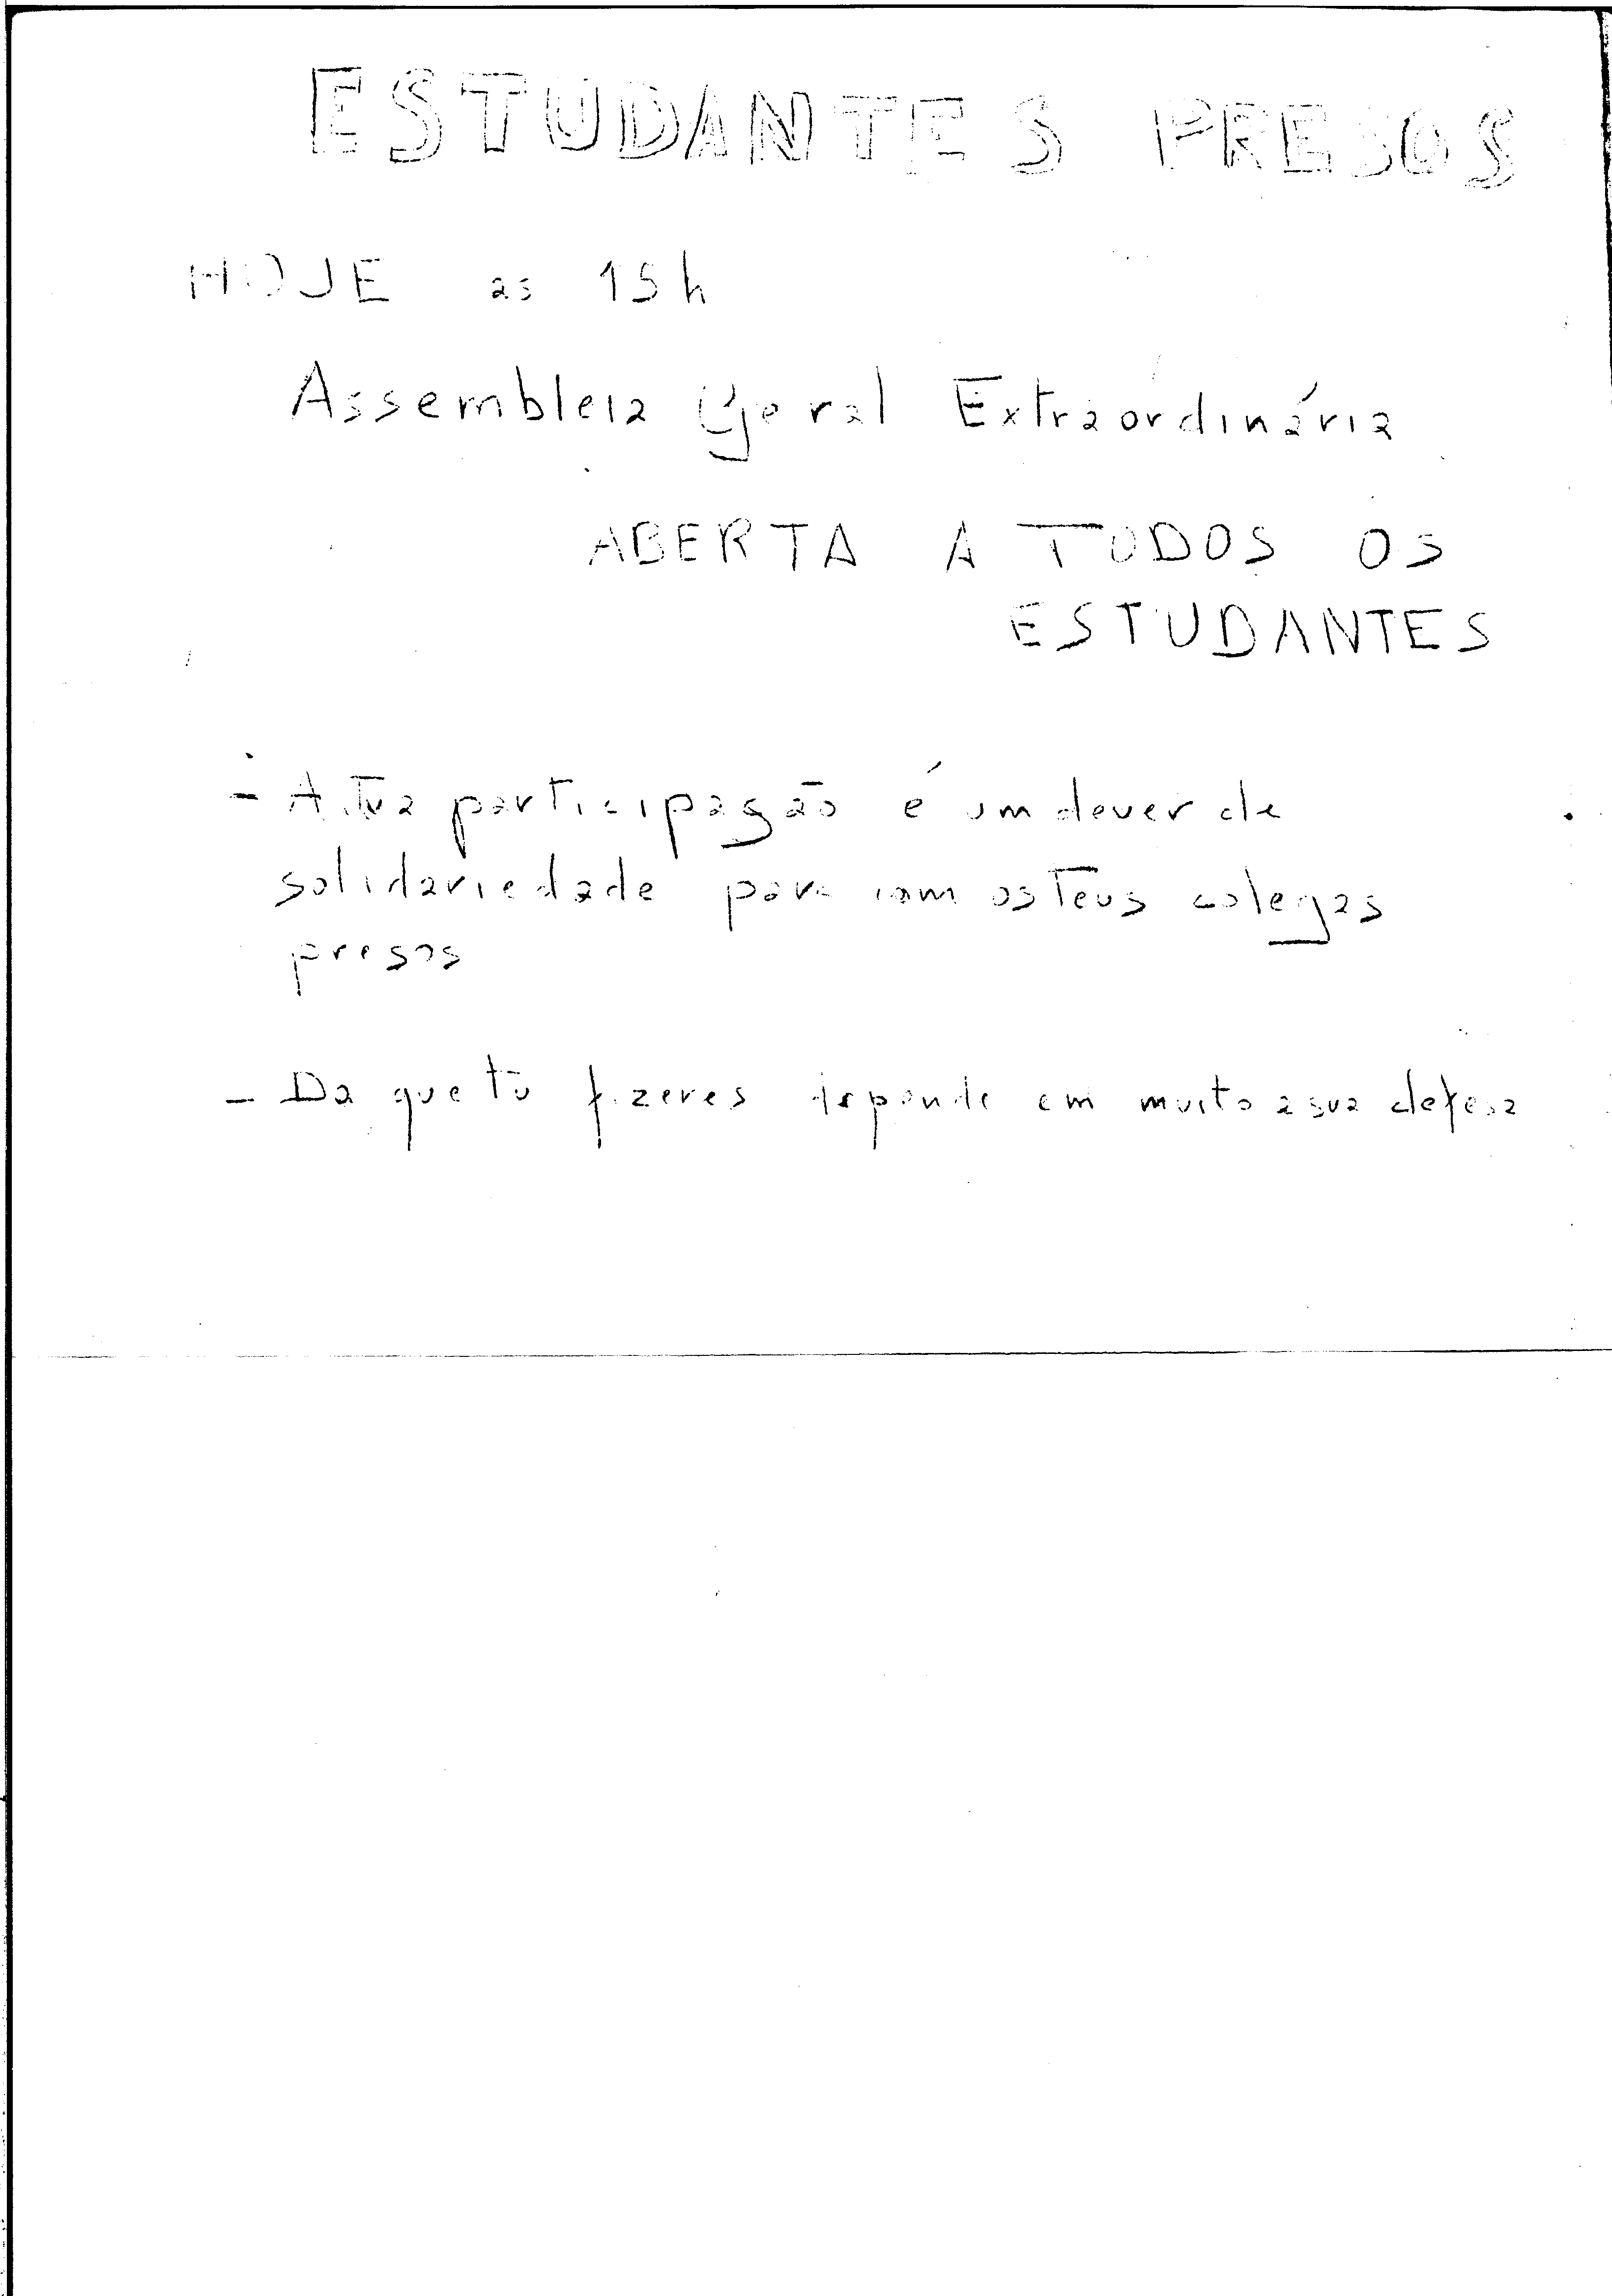 ESTUDANTES PRESOS
HOJE as 15h
Assembleia Geral Extraordinária
ABERTA A TODOS OS
ESTUDANTES
- A tua participação é um dever de
solidariedade para com os teus colegas
presos
- Do que tu fizeres depende em muito a sua defesa